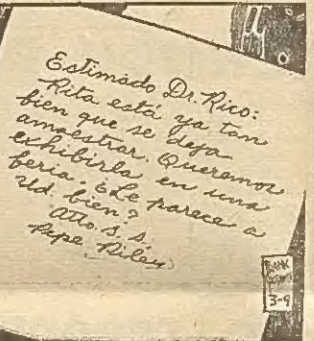 Estimado Dr. Rico:
Rita está ya tan
bien que se deja
amaestrar. Queremos
exhibirla en una
feria. ¿Le parece a
Ud. bien?
Atto. s. s.
Pepe Riley
3-9